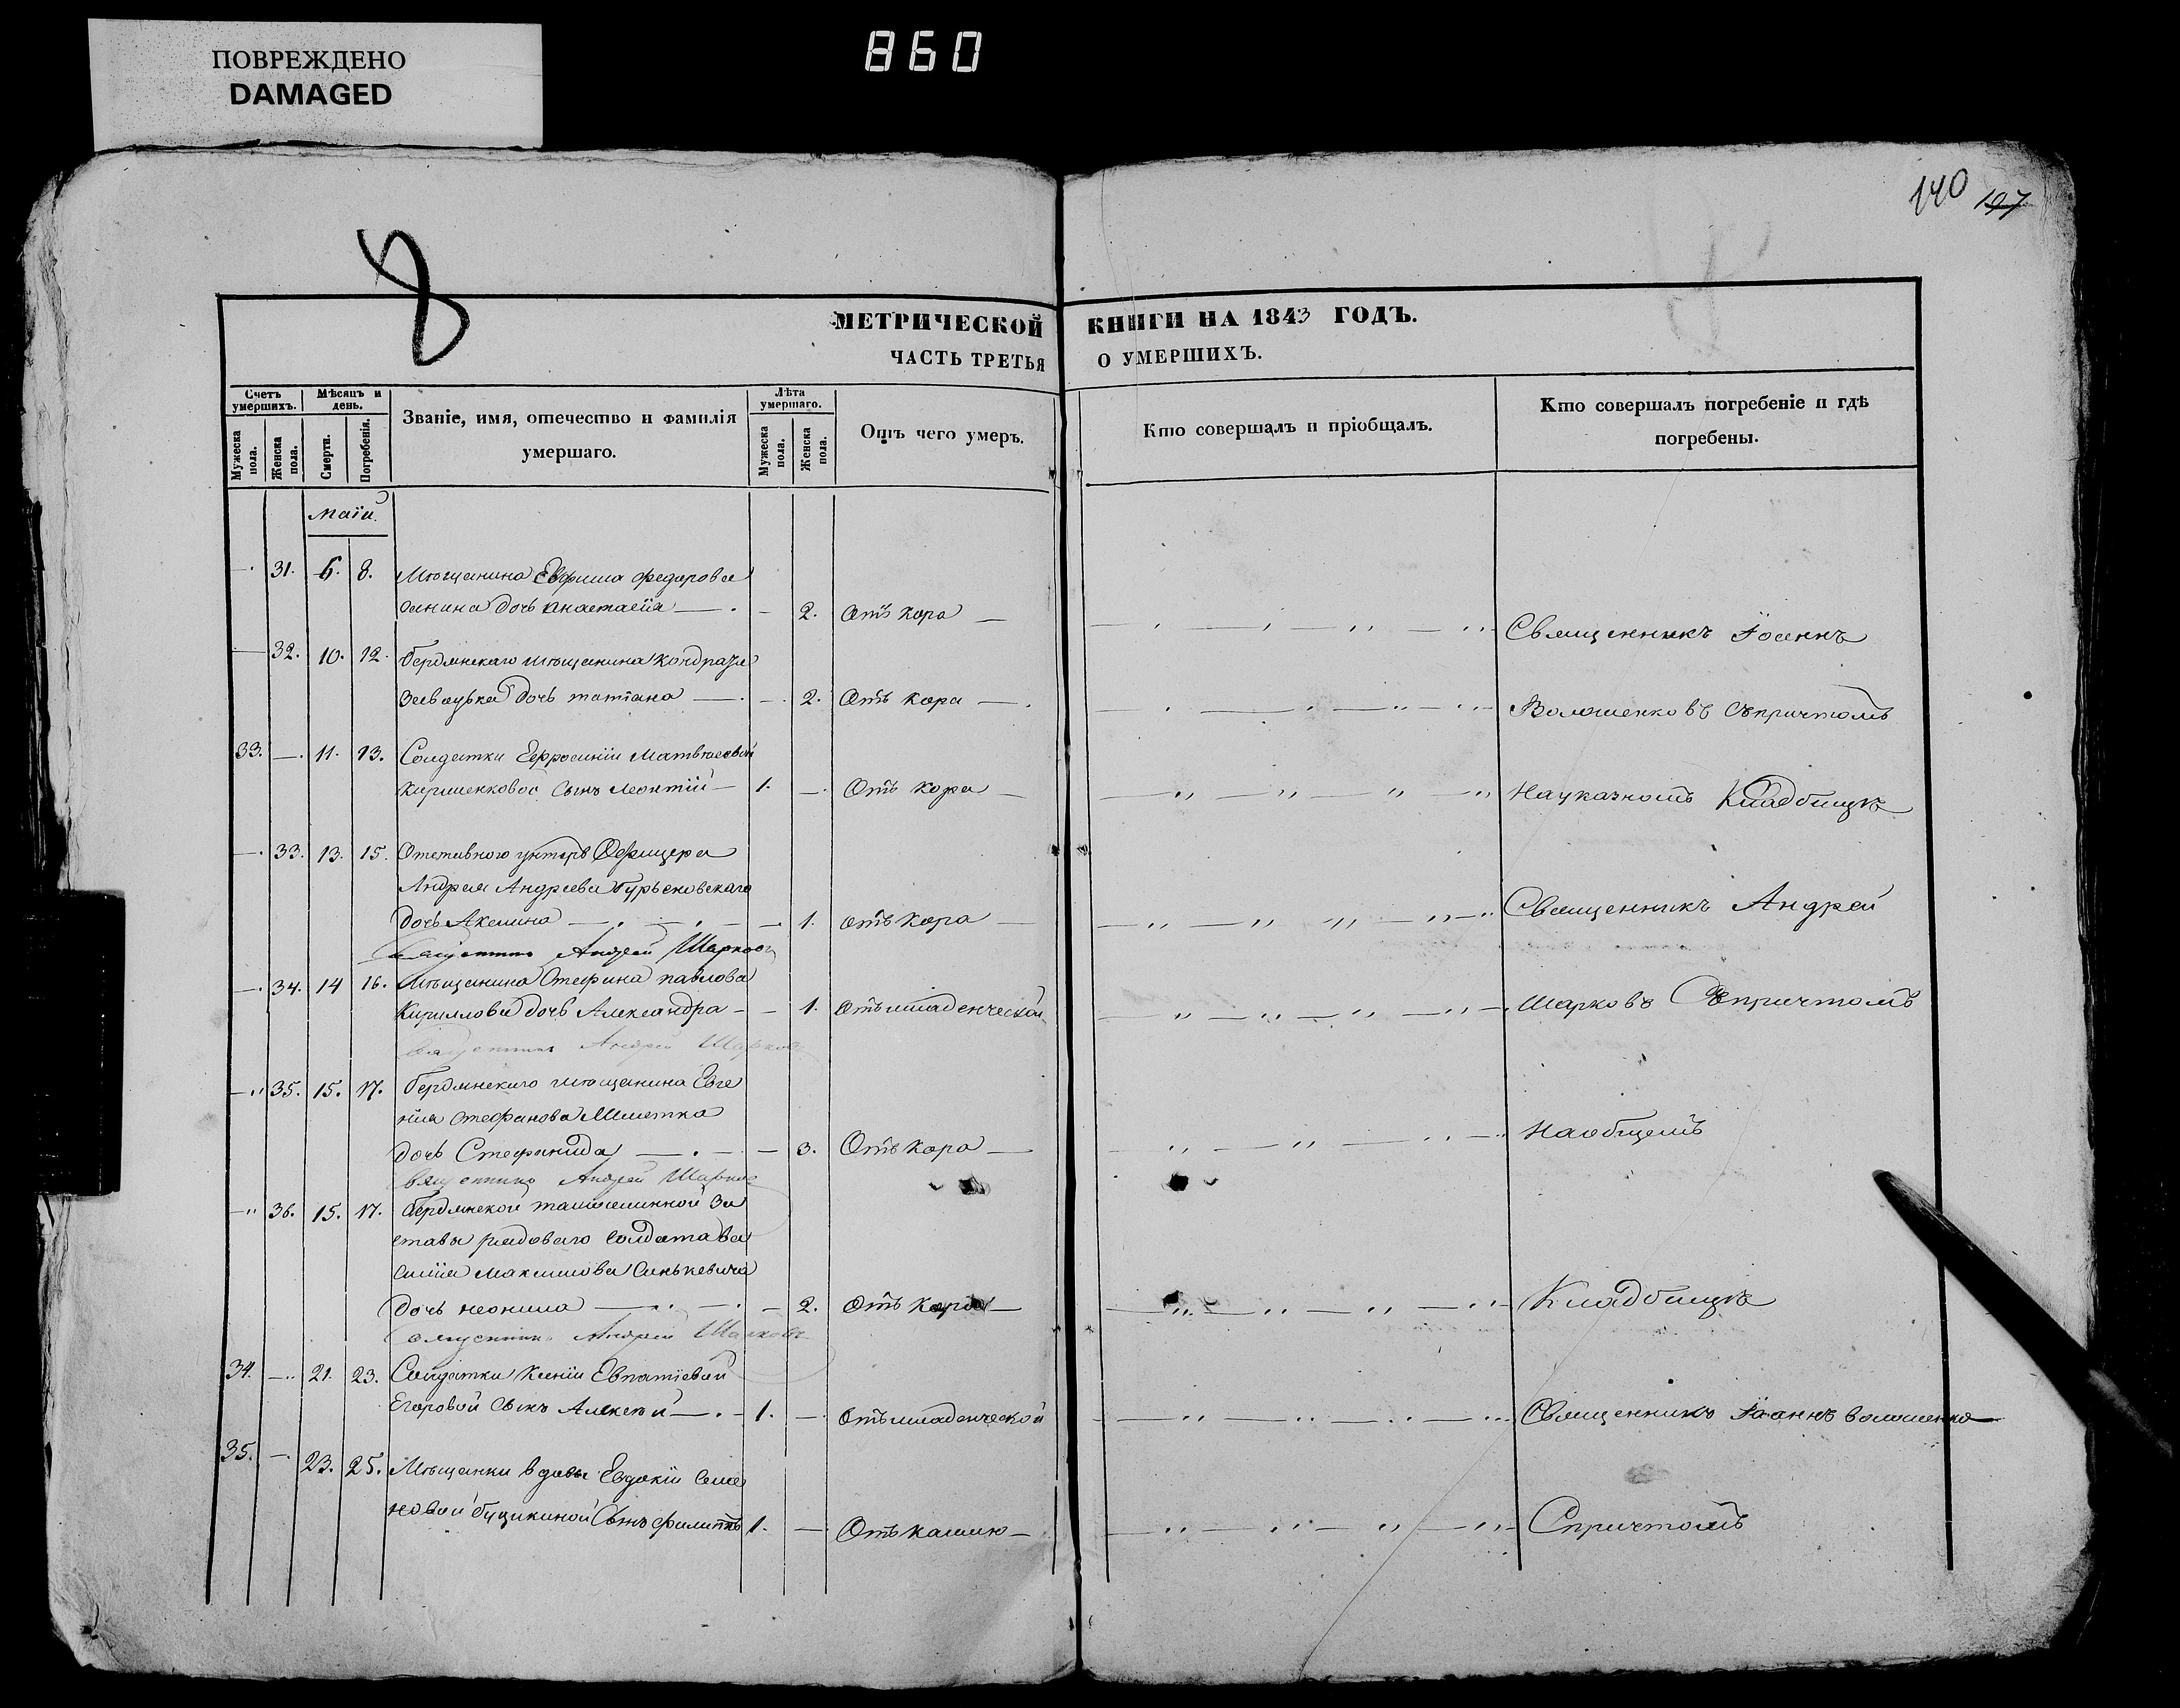 ПОВРЕЖДЕНО
DAMAGED
860
140 197
8
МЕТРИЧЕСКОЙ КНИГИ НА 1843 ГОДЪ.
ЧАСТЬ ТРЕТЬЯ О УМЕРШИХЪ.
Счетъ умершихъ.
Мужеска пола.
Женска пола.
Мѣсяцъ и день.
Смерти.
Погребенія.
Званіе, имя, отечество и фамилія умершаго.
Лѣта умершаго.
Мужеска пола.
Женска пола.
Отъ чего умеръ.
Кто совершалъ и пріобщалъ.
Кто совершалъ погребеніе и гдѣ погребены.
Маiи
31. 6. 8. Мѣщанина Федорова
дочь Анастасiя 2. Отъ кора
Священникъ Iоаннъ
32. 10. 12. Бердянскаго мѣщанина Кондратiя
дочь Татiана 2. Отъ кора
Волошенковъ съпричтомъ
33. 11. 13. Солдатки Ефросинiи Матвѣевой
Сынъ Леонтiй 1. Отъ кора
Науказномъ Кладбищѣ
33. 13. 15. Отставного унтеръ Офицера
Андрея Андреева
дочь Акилина 1. отъ кора
Священникъ Андрей
Священникъ Андрей Шарковъ
34. 14 16. Мѣщанина Стефана Павлова
Кирилова дочь Александра 1. Отъ младенческой
Шарковъ Съпричтомъ
Священникъ Андрей Шарковъ
35. 15. 17. Бердянскаго мѣщанина Евге
нiя Стефанова
дочь Стефанида 3. Отъ кора
Наобщемъ
Священникъ Андрей Шарковъ
36. 15. 17. Бердянской таможенной За
ставы рядоваго солдата Ва
силiя Максимова Синькевича
дочь Неонила 2. Отъ кора
Кладбищѣ
Священникъ Андрей Шарковъ
34. 21. 23. Солдатки Ксенiи Евпатiевой
Егоровой Сынъ Алексѣй 1. Отъ младенческой
Священникъ Iоаннъ Волошенко
35. 23. 25. Мѣщанки вдовы Евдокiи Семе
новой Сынъ Филиппъ 1. Отъ кашлю
Спричтомъ